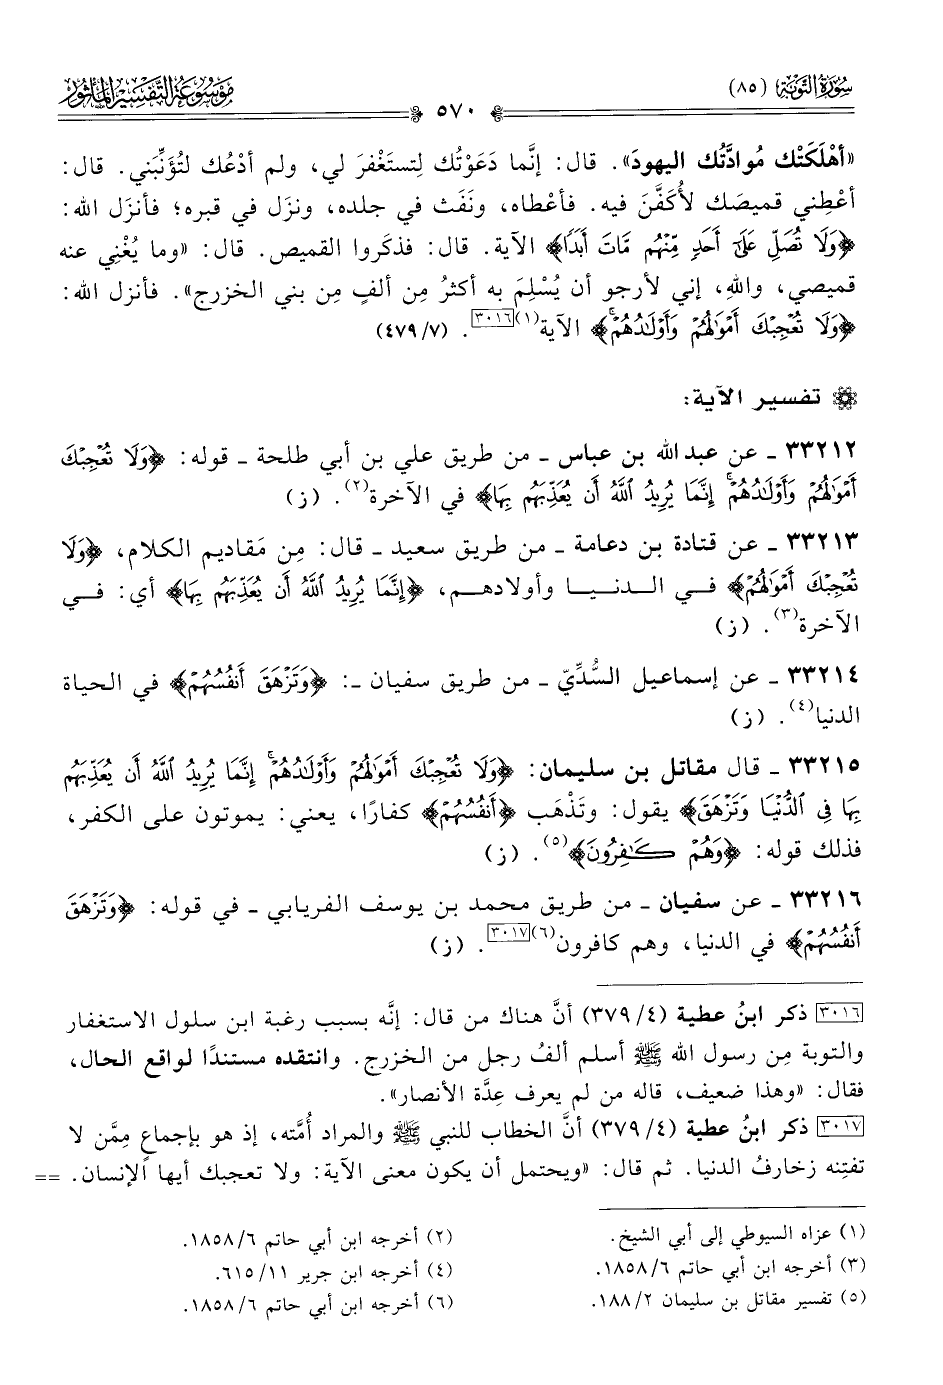 سُورَةُ التَّوْبَةِ (٨٥)
٥٧٠
مَوْسُوعَةُ التَّفْسِيرِ المَأْثُور
«أهْلَكَتْك مُوادَّتُك اليهودَ». قال: إنَّما دَعَوْتُك لِتستَغْفرَ لي، ولم أدْعُك لتُؤَنِّبَني. قال:
أعْطِني قميصَك لأُكَفَّنَ فيه. فأعْطاه، ونَفَث في جلده، ونزَل في قبره؛ فأنزَل الله:
﴿وَلَا تُصَلِّ عَلَىٰٓ أَحَدٍ مِّنْهُم مَّاتَ أَبَدًا﴾ الآية. قال: فذكَروا القميص. قال: «وما يُغْنِي عنه
قميصي، واللهِ، إني لأرجو أن يُسْلِمَ به أكثرُ مِن ألفٍ مِن بني الخزرج». فأنزل الله:
﴿وَلَا تُعْجِبْكَ أَمْوَٰلُهُمْ وَأَوْلَـٰدُهُمْ﴾ الآية(١)[٣٠١٦]. (٧/ ٤٧٩)
تفسير الآية:
٣٣٢١٢ ـ عن عبد الله بن عباس ـ من طريق علي بن أبي طلحة ـ قوله: ﴿وَلَا تُعْجِبْكَ
أَمْوَٰلُهُمْ وَأَوْلَـٰدُهُمْ ۚ إِنَّمَا يُرِيدُ ٱللَّهُ أَن يُعَذِّبَهُم بِهَا﴾ في الآخرة(٢). (ز)
٣٣٢١٣ ـ عن قتادة بن دعامة ـ من طريق سعيد ـ قال: مِن مَقاديم الكلام، ﴿وَلَا
تُعْجِبْكَ أَمْوَٰلُهُمْ﴾ في الدنيا وأولادهم، ﴿إِنَّمَا يُرِيدُ ٱللَّهُ أَن يُعَذِّبَهُم بِهَا﴾ أي: في
الآخرة(٣). (ز)
٣٣٢١٤ ـ عن إسماعيل السُّدِّيّ ـ من طريق سفيان ـ: ﴿وَتَزْهَقَ أَنفُسُهُمْ﴾ في الحياة
الدنيا(٤). (ز)
٣٣٢١٥ ـ قال مقاتل بن سليمان: ﴿وَلَا تُعْجِبْكَ أَمْوَٰلُهُمْ وَأَوْلَـٰدُهُمْ ۚ إِنَّمَا يُرِيدُ ٱللَّهُ أَن يُعَذِّبَهُم
بِهَا فِى ٱلدُّنْيَا وَتَزْهَقَ﴾ يقول: وتَذْهَب ﴿أَنفُسُهُمْ﴾ كفارًا، يعني: يموتون على الكفر،
فذلك قوله: ﴿وَهُمْ كَـٰفِرُونَ﴾(٥). (ز)
٣٣٢١٦ ـ عن سفيان ـ من طريق محمد بن يوسف الفريابي ـ في قوله: ﴿وَتَزْهَقَ
أَنفُسُهُمْ﴾ في الدنيا، وهم كافرون(٦)[٣٠١٧]. (ز)
[٣٠١٦] ذكر ابنُ عطية (٤/ ٣٧٩) أنَّ هناك من قال: إنَّه بسبب رغبة ابن سلول الاستغفار
والتوبة مِن رسول الله ﷺ أسلم ألفُ رجل من الخزرج. وانتقده مستندًا لواقع الحال،
فقال: «وهذا ضعيف، قاله من لم يعرف عِدَّة الأنصار».
[٣٠١٧] ذكر ابنُ عطية (٤/ ٣٧٩) أنَّ الخطاب للنبي ﷺ والمراد أُمَّته، إذ هو بإجماعٍ مِمَّن لا
تفتِنه زخارفُ الدنيا. ثم قال: «ويحتمل أن يكون معنى الآية: ولا تعجبك أيها الإنسان. ==
(١) عزاه السيوطي إلى أبي الشيخ.
(٢) أخرجه ابن أبي حاتم ٦/ ١٨٥٨.
(٣) أخرجه ابن أبي حاتم ٦/ ١٨٥٨.
(٤) أخرجه ابن جرير ١١/ ٦١٥.
(٥) تفسير مقاتل بن سليمان ٢/ ١٨٨.
(٦) أخرجه ابن أبي حاتم ٦/ ١٨٥٨.